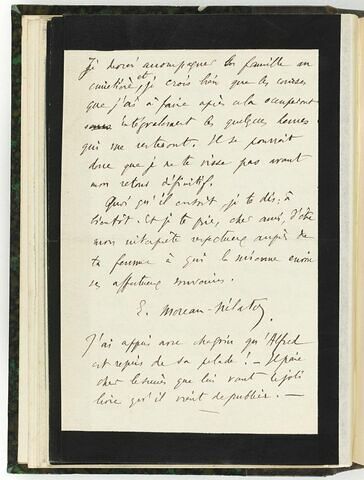 Je devrai accompagner la famille au
cimetière et je crois bien que les courses
que j'ai à faire après cela occuperont
intégralement les quelques heures
qui me resteront. Il se pourrait
donc que je ne te visse pas avant
mon retour définitif.
Quoi qu'il en soit, je te dis : à
bientôt. Et je te prie, cher ami, d'être
mon interprète respectueux auprès de
ta femme à qui la mienne envoie
ses affectueux souvenirs.
E. Moreau-Nélaton
J'ai appris avec chagrin qu'Alfred
est repris de sa pelade ! — Il paie
cher le succès que lui vaut le joli
livre qu'il vient de publier. —